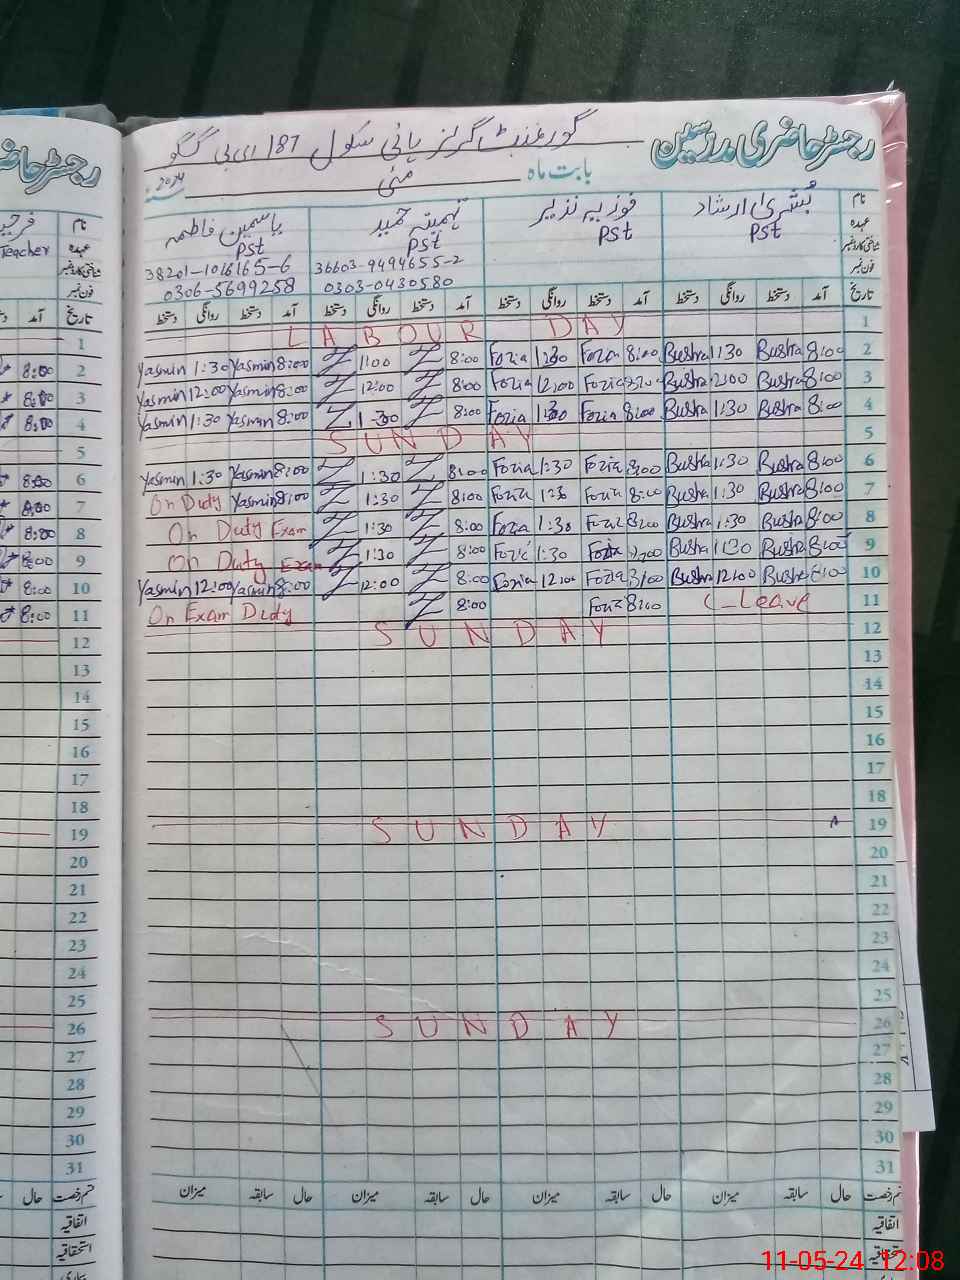 رجسٹر حاضری مدرسین
گورنمنٹ گرلز ہائی سکول 187 ای بی گگو
بابت ماہ مئی 2024
نام بشریٰ ارشاد فوزیہ نذیر حمید یاسمین فاطمہ
عہدہ PST PST PST PST Teacher
شناختی کارڈ نمبر 36603-9494655-2 38201-1016165-6
فون نمبر 0303-0430580 0306-5699258
تاریخ آمد دستخط روانگی دستخط آمد دستخط روانگی دستخط آمد دستخط روانگی دستخط آمد دستخط روانگی دستخط تاریخ آمد
1 LABOUR DAY 1
8:00 2 Yasmin 1:30 Yasmin 8:00 1:00 8:00 Fozia 1:30 Fozia 8:00 Bushra 1:30 Bushra 8:00 2
8:00 3 Yasmin 12:00 Yasmin 8:00 12:00 8:00 Fozia 12:00 Fozia Bushra 12:00 Bushra 8:00 3
8:00 4 Yasmin 1:30 Yasmin 8:00 1:30 8:00 Fozia 1:30 Fozia 8:00 Bushra 1:30 Bushra 8:00 4
5 SUNDAY 5
8:00 6 Yasmin 1:30 Yasmin 8:00 1:30 8:00 Fozia 1:30 Fozia 8:00 Bushra 1:30 Bushra 8:00 6
8:00 7 On Duty Yasmin 8:00 1:30 8:00 Fozia 1:30 Fozia 8:00 Bushra 1:30 Bushra 8:00 7
8:00 8 On Duty Exam 1:30 8:00 Fozia 1:30 Fozia 8:00 Bushra 1:30 Bushra 8:00 8
8:00 9 On Duty Exam 1:30 8:00 Fozia 1:30 Fozia Bushra 1:30 Bushra 8:00 9
8:00 10 Yasmin 12:00 Yasmin 8:00 12:00 8:00 Fozia 12:00 Fozia 8:00 Bushra 12:00 Bushra 8:00 10
8:00 11 On Exam Duty 8:00 Fozia 8:00 C-Leave 11
12 SUNDAY 12
13 13
14 14
15 15
16 16
17 17
18 18
19 SUNDAY 19
20 20
21 21
22 22
23 23
24 24
25 25
26 SUNDAY 26
27 27
28 28
29 29
30 30
31 31
قسم رخصت حال سابقہ میزان حال سابقہ میزان حال سابقہ میزان حال سابقہ میزان قسم رخصت حال
اتفاقیہ اتفاقیہ
استحقاقیہ استحقاقیہ
بیماری
11-05-24 12:08